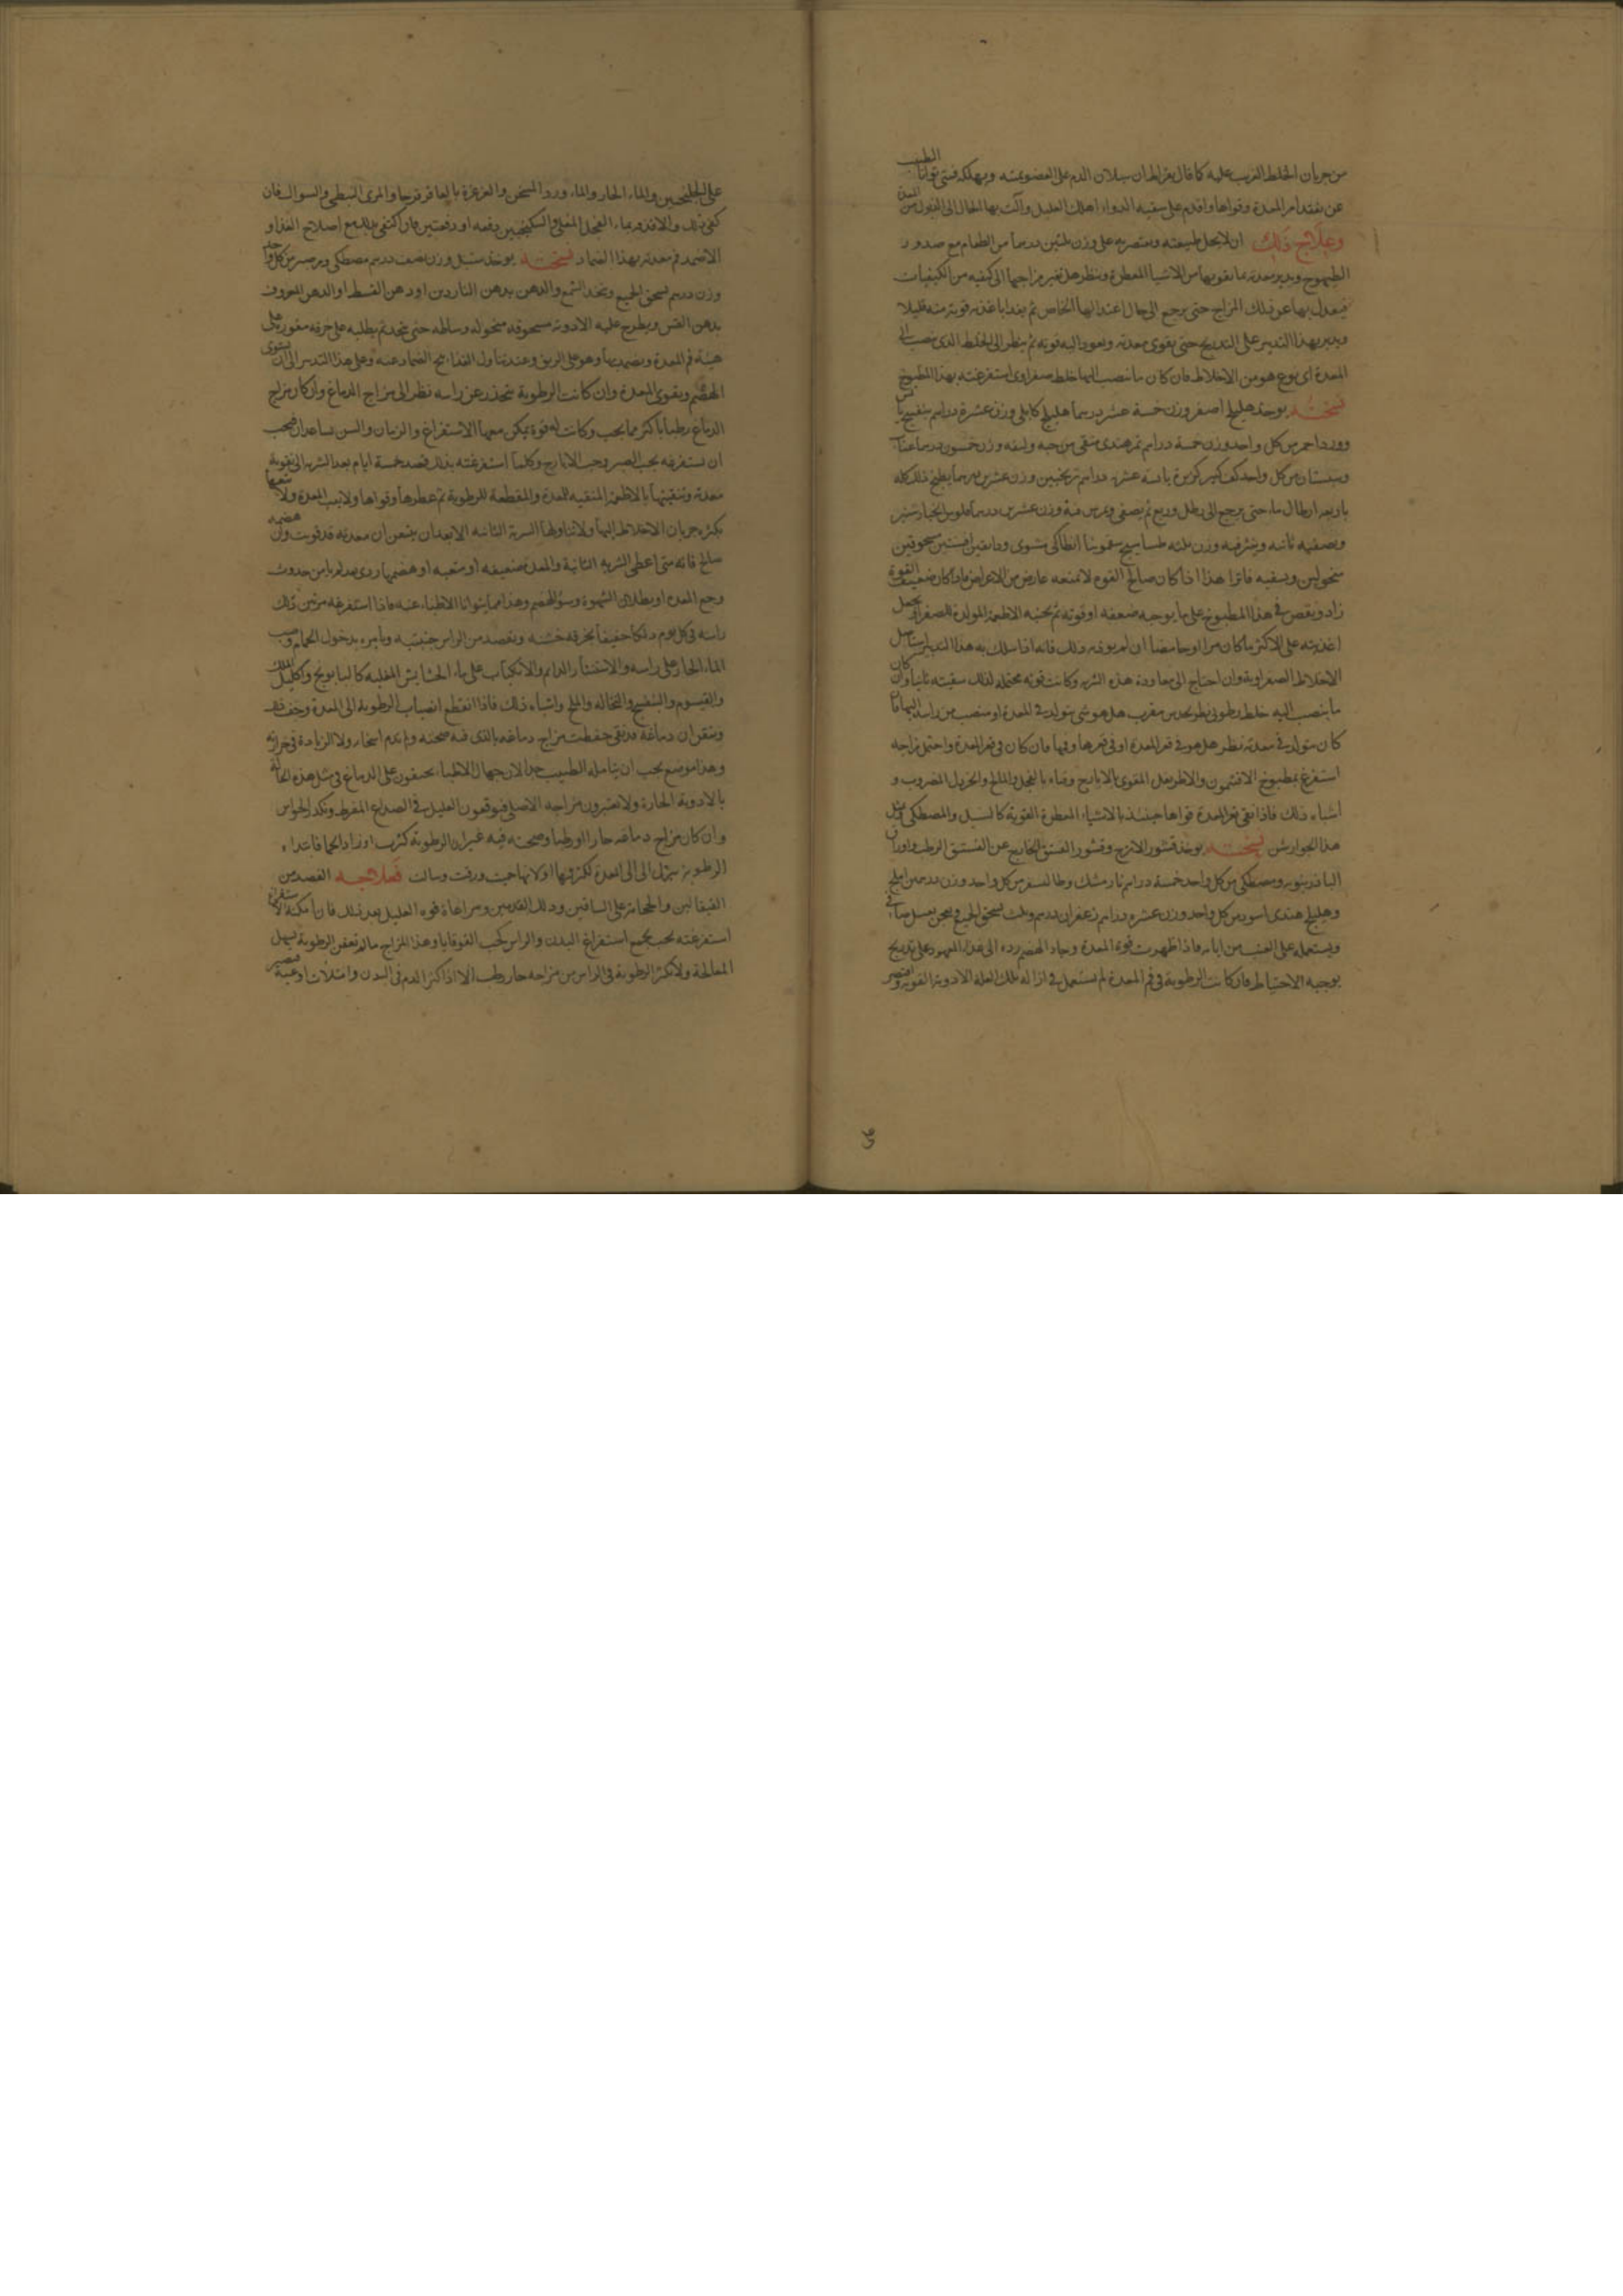 من جريان الخلط الغريب عليه كما قال بقراط ان سيلان الدم على العضو يميته ويهلكه فمتى توانا الطبيب
عن تفقد امر المعدة وقواها واقدم على سقيه الدواء اهلك العليل وآلت بها الحال الى
وعلاج ذلك ان لا يحل طبيعته ويقتصر به على وزن ثلثين درهما من الطعام مع صدور
الطيهوج ويدبر معدته بما يقويها من الاشيا المعطرة وينظر هل تغير مزاجها الى كيفيه من الكيفيات
فيعدل بها عن ذلك المزاج حتى يرجع الى حال اعتدالها الخاص ثم يغذا باغذيه قويه منه قليلا
ويدبر بهذا التدبير على التدريج حتى يقوى معدته ويعود اليه قوته ثم ينظر الى الخلط الذى ينصب الى
المعدة اى نوع هو من الاخلاط فان كان ما ينصب اليها خلط صفراوى استفرغته بهذا المطبوخ
نسخته يوخذ هليلج اصفر وزن خمسة عشر درهما هليلج كابلى وزن عشرة دراهم بنفسج يابس
وورد احمر من كل واحد وزن خمسة دراهم تمر هندى منقى من حبه وليفه وزن خمسون درهما عناب
وسبستان من كل واحد كف كبير كزبرة يابسه عشرة دراهم ترنجبين وزن عشرين درهما يطبخ ذلك كله
باربعه ارطال ماء حتى يرجع الى رطل وربع ثم يصفى ويمرس فيه وزن عشرين درهما فلوس الخيارشنبر
ويصفيه ثانيه وينثر فيه وزن ثلثه طساسيج سقمونيا انطاكى مشوى ودانقين افسنتين مسحوقين
منخولين ويسقيه فاترا هذا اذا كان صالح القوه لا تمنعه عارض من الاعراض فاذا كان ضعيف القوة
زاد ونقص فى هذا المطبوخ على ما يوجبه ضعفه او قوته ثم يجنبه الاطعمة المولدة للصفرا ويجعل
اغذيته على الاكثر ما كان مزا او حامضا ان لم يوذيه ذلك فانه اذا سلك به هذا التدبير استاصل
الاخلاط الصفراوية وان احتاج الى معاودة هذه الشربه وكانت قوته محتملة لذلك سقيته ثانيا وان كان
ما ينصب اليه خلط رطوبى نظر هل هو شى يتولد فى المعدة او منصب من راسه اليها فان
كان متولد فى معدته نظر هل هو فى قعر المعدة او فى قعرها وفمها فان كان فى قعر المعدة واحتمل مزاجه
استفرغ بمطبوخ الافتيمون والاطريفل المقوى بالايارج وقياه بالفجل والملح والخردل المضروب و
اشباه ذلك فاذا نقى قعر المعدة قواها حينئذ بالاشياء المعطرة القوية كالسنبل والمصطكى ومثل
هذا الجوارش نسخته يوخذ قشور الاترج وقشور الفستق الخارج عن الفستق الرطب واوراق
الباذرنبويه ومصطكى من كل واحد خمسة دراهم نارمشك وطاليسفر من كل واحد وزن درهمين املج
وهليلج هندى اسود من كل واحد وزن عشره دراهم زعفران درهم وثلث يسحق الجميع ويعجن بعسل صافى
ويستعمله على الغب من ايامه فاذا ظهرت قوة المعدة وجاد الهضم رده الى غذاه المعهود على تدريج
يوجبه الاحتياط فان كانت الرطوبة فى فم المعدة لم يستعمل فى ازالة تلك العلة الادوية القوية واقتصر
على الجلنجبين والماء الحار والماء ورد المسخن والغرغرة بالعاقرقرحا والمرى النبطى والسواك فان
كفى ذلك والا قذفه بماء الفجل المغلى والسكنجبين دفعه او دفعتين فان اكتفى بذلك مع اصلاح الغذا و
الا ضمد فم معدته بهذا الضماد نسخته يوخذ سنبل وزن نصف درهم مصطكى من كل واحد
وزن درهم يسحق الجميع ويتخذ الشمع والدهن بدهن الناردين او دهن القسط او الدهن المعروف
بدهن ويطرح عليه الادوية مسحوقه منخوله وساطه حتى يتحد ثم يطليه على خرقه مقوره على
هيئة فم المعدة ويضمد بها وهو على الريق وعند تناول الغذاء يحى الضماد عنه وعلى هذا التدبير الى ان يستوى
الهضم ويقوى المعدة وان كانت الرطوبة تنحدر عن راسه نظر الى مزاج الدماغ وان كان مزاج
الدماغ رطبا باكثر مما يجب وكانت له قوة يمكن معها الاستفراغ والزمان والسن يساعدان فيجب
ان يستفرغه بحب الصبر وحب الايارج وكلما استفرغته بذلك قصد خمسة ايام بعد الشربه الى تقوية
معدته وتنقيتها بالاطعمة المنقيه للمعدة والمقطعة للرطوبة ثم عطرها وقواها ولا يتعب المعدة ولا يضعفها
بكثرة جريان الاخلاط اليها ولا يناولها الشربة الثانيه الا بعد ان يتيقن ان معدته قد قويت وان هضمه
صالح فانه متى اعطى الشربه الثانية والمعدة ضعيفه او متعبه او هضمها ردى لم يامن حدوث
وجع المعده او بطلان الشهوة وسوء الهضم وهذا مما يتوانا الاطباء عنه فاذا استفرغه مرتين دلك
راسه فى كل يوم دلكا خفيفا بخرقه خشنه ويقصد من الراس جنبتيه ويامره بدخول الحمام وصب
الماء الحار على راسه والاستنثار الدايم والانكباب على ماء الحشايش المغليه كالبابونج واكليل الملك
والقيسوم والبنفسج والنخاله والملح واشباه ذلك فاذا انقطع انصباب الرطوبة الى المعدة وخف
وتيقن ان دماغه قد نقى حفظت مزاج دماغه بالذى فيه صحته ولم يدم اسخانه ولا الزيادة فى حرارته
وهذا موضع يجب ان يتامله الطبيب جدا لان جهال الاطباء يحيفون على الدماغ فى مثل هذه الحالة
بالادوية الحارة ولا يعتبرون مزاجه الاصلى فيوقعون العليل فى الصداع المفرط وتكدر الحواس
وان كان مزاج دماغه حارا ورطبا وصحته فيه غير ان الرطوبة كثرت او زاد الحما فابتداء
الرطوبة تنزل الى المعدة لكثرتها اولا نها حميت ورقت وسالت فعلاجه الفصد من
القيفالين والحجامة على الساقين ودلك القدمين ومراعاة قوه العليل بعد ذلك فان امكنه الاستفراغ
استفرغته بحب يجمع استفراغ البدن والراس كحب القوقايا وهذا المزاج ما لم تعفن الرطوبة يسهل
المعالجة ولا تكثر الرطوبة فى الراس من مزاجه حار رطب الا اذا كثر الدم فى البدن وامتلات اوعيته